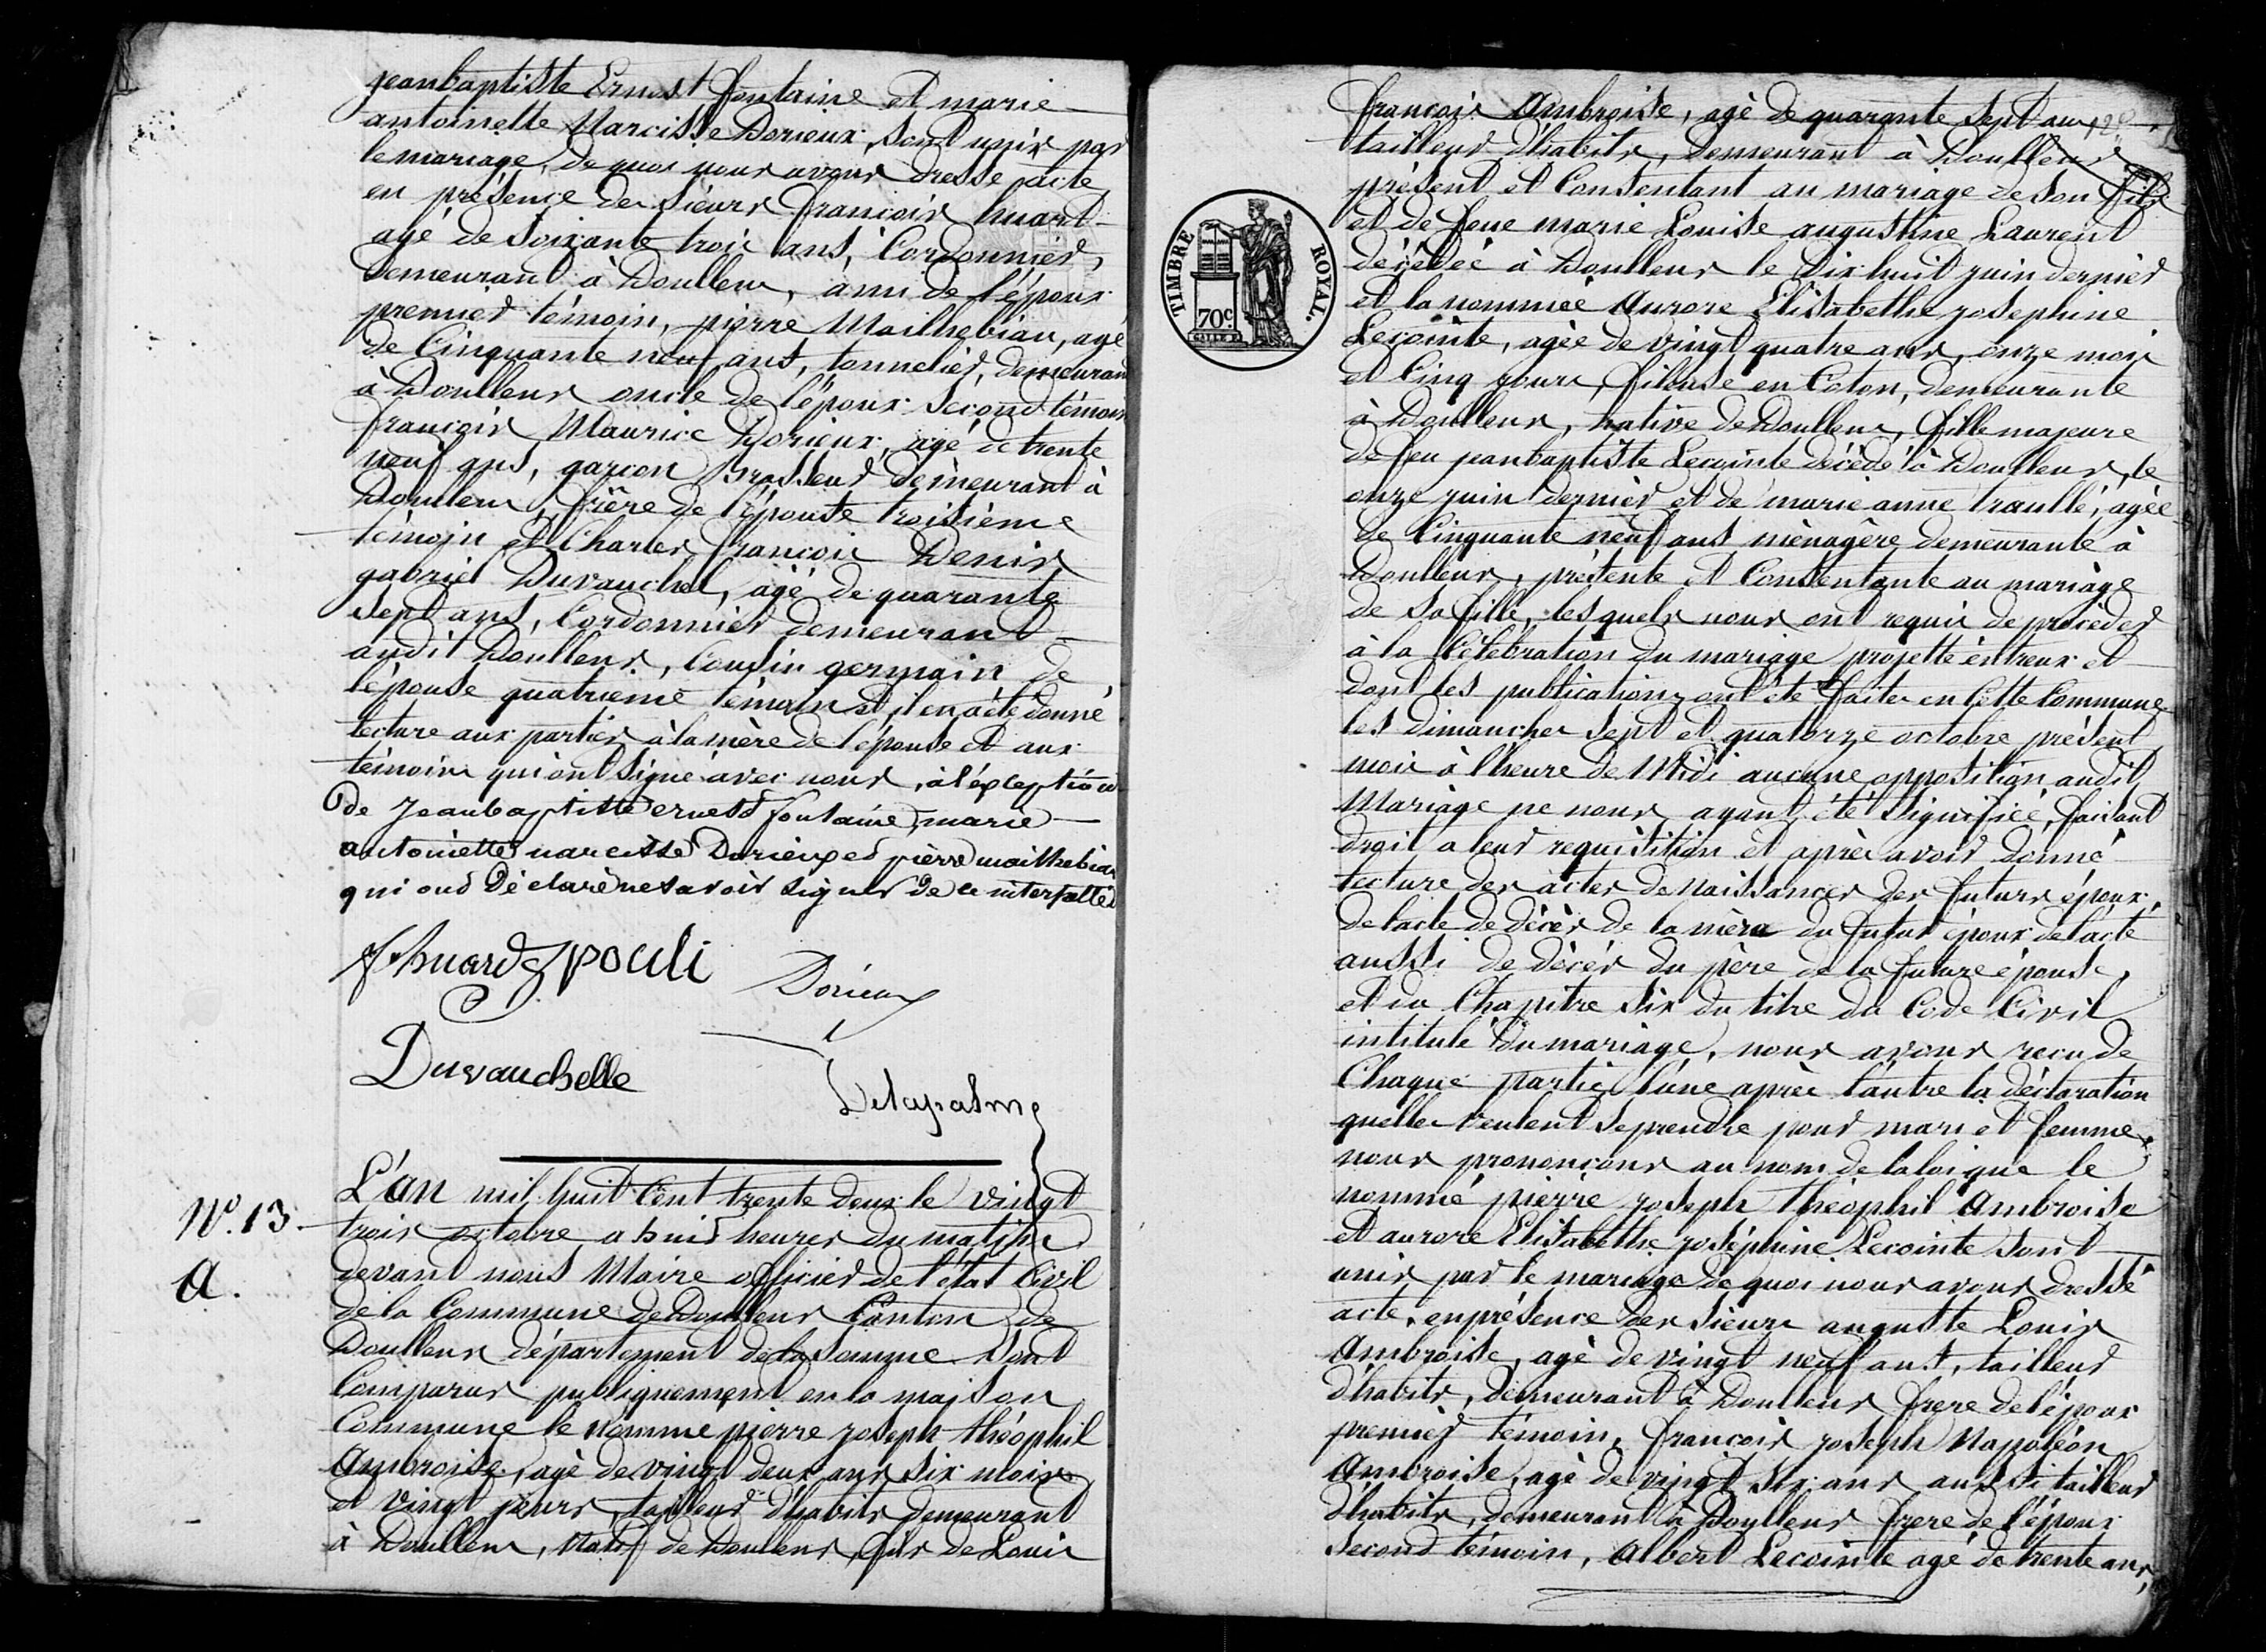 jeanbaptiste Ernest fontaine et marie
antoinette Narcisse Dorieux, sont unis par
le mariage, de quoi nous avons dressé acte
en présence des sieurs françois huart
agé de soixante trois ans, Cordonnier,
demeurant à Doullens, ami de l'époux
premier témoin, pierre Mailhebiau, agé
de Cinquante neuf ans, tonnelier, demeurant
à Doullens oncle de l'époux second témoin
françois Maurice Dorieux, agé de trente
neuf ans, garcon Brasseur demeurant à
Doullens, frère de l'épouse troisième
témoin et Charles françois Denis
gabriel Duvauchel, agé de quarante
sept ans, Cordonnier demeurant
audit Doullens, Cousin germain de
l'épouse quatrieme témoin et il en a été donné
lecture aux parties à la mère de l'épouse et aux
témoins qui ont signé avec nous, à l'éxception
de Jeanbaptiste ernest fontaine, marie
antoinette narcisse Dorieux et pierre mailhebiau
qui ont déclaré ne savoir signer de ce interpellés
f huard pouli
Dorieux
Duvauchelle
Delapalme
N.º 13.
A.
L'an mil huit Cent trente deux le vingt
trois octobre a huit heures du matin
devant nous Maire officier de l'état Civil
de la Commune de Doullens Canton de
Doullens département de la Somme Sont
Comparus publiquement en la maison
Commune le nommé pierre joseph théophil
Ambroise, agé de vingt deux ans six mois
et vingt jours, tailleur d'habits demeurant
à Doullens, Natif de Doullens, fils de Louis
TIMBRE ROYAL.
70c
françois Ambroise, agé de quarante sept ans
tailleur d'habits, demeurant à Doullens
présent et Consentant au mariage de son fils
et de feue marie Louise augustine Laurent
décédée à Doullens le Dix huit juin dernier
et la nommée Aurore Elisabethe josephine
Lecointe, agée de vingt quatre ans, onze mois
et Cinq jours, fileuse en Coton, demeurante
à Doullens, native de Doullens, fille majeure
de feu jeanbaptiste Lecointe décédé à Doullens, le
onze juin dernier et de marie anne traullé, agée
de Cinquante neuf ans ménagère demeurante à
Doullens, présente et Consentante au mariage
de sa fille, lesquels nous ont requis de procéder
à la Célébration du mariage projetté entreux et
dont les publications ont été faites en Cette Commune
les dimanches sept et quatorze octobre présent
mois à l'heure de Midi aucune opposition audit
Mariage ne nous ayant été signifiée, faisant
droit a leur requisition et après avoir donné
lecture des actes de Naissances des futurs époux,
de l'acte de décès de la mère du futur époux de l'acte
aussi de décès du père de la future épouse,
et du Chapitre Six du titre du Code Civil
intitulé du mariage, nous avons recu de
Chaque partie l'une après l'autre la déclaration
quelles veulent se prendre pour mari et femme,
nous prononçons au nom de la loi que le
nommé pierre joseph théophil Ambroise
et aurore Elisabethe joséphine Lecointe sont
unis par le mariage de quoi nous avons dressé
acte, en présence des sieurs auguste Louis
Ambroise, agé de vingt neuf ans, tailleur
d'habits, demeurant à Doullens frere de l'époux
premier témoin, françois joseph Napoléon
Ambroise, agé de vingt six ans aussi tailleur
d'habits, demeurant à Doullens frere de l'époux
second témoin, Albert Lecointe agé de trente ans,